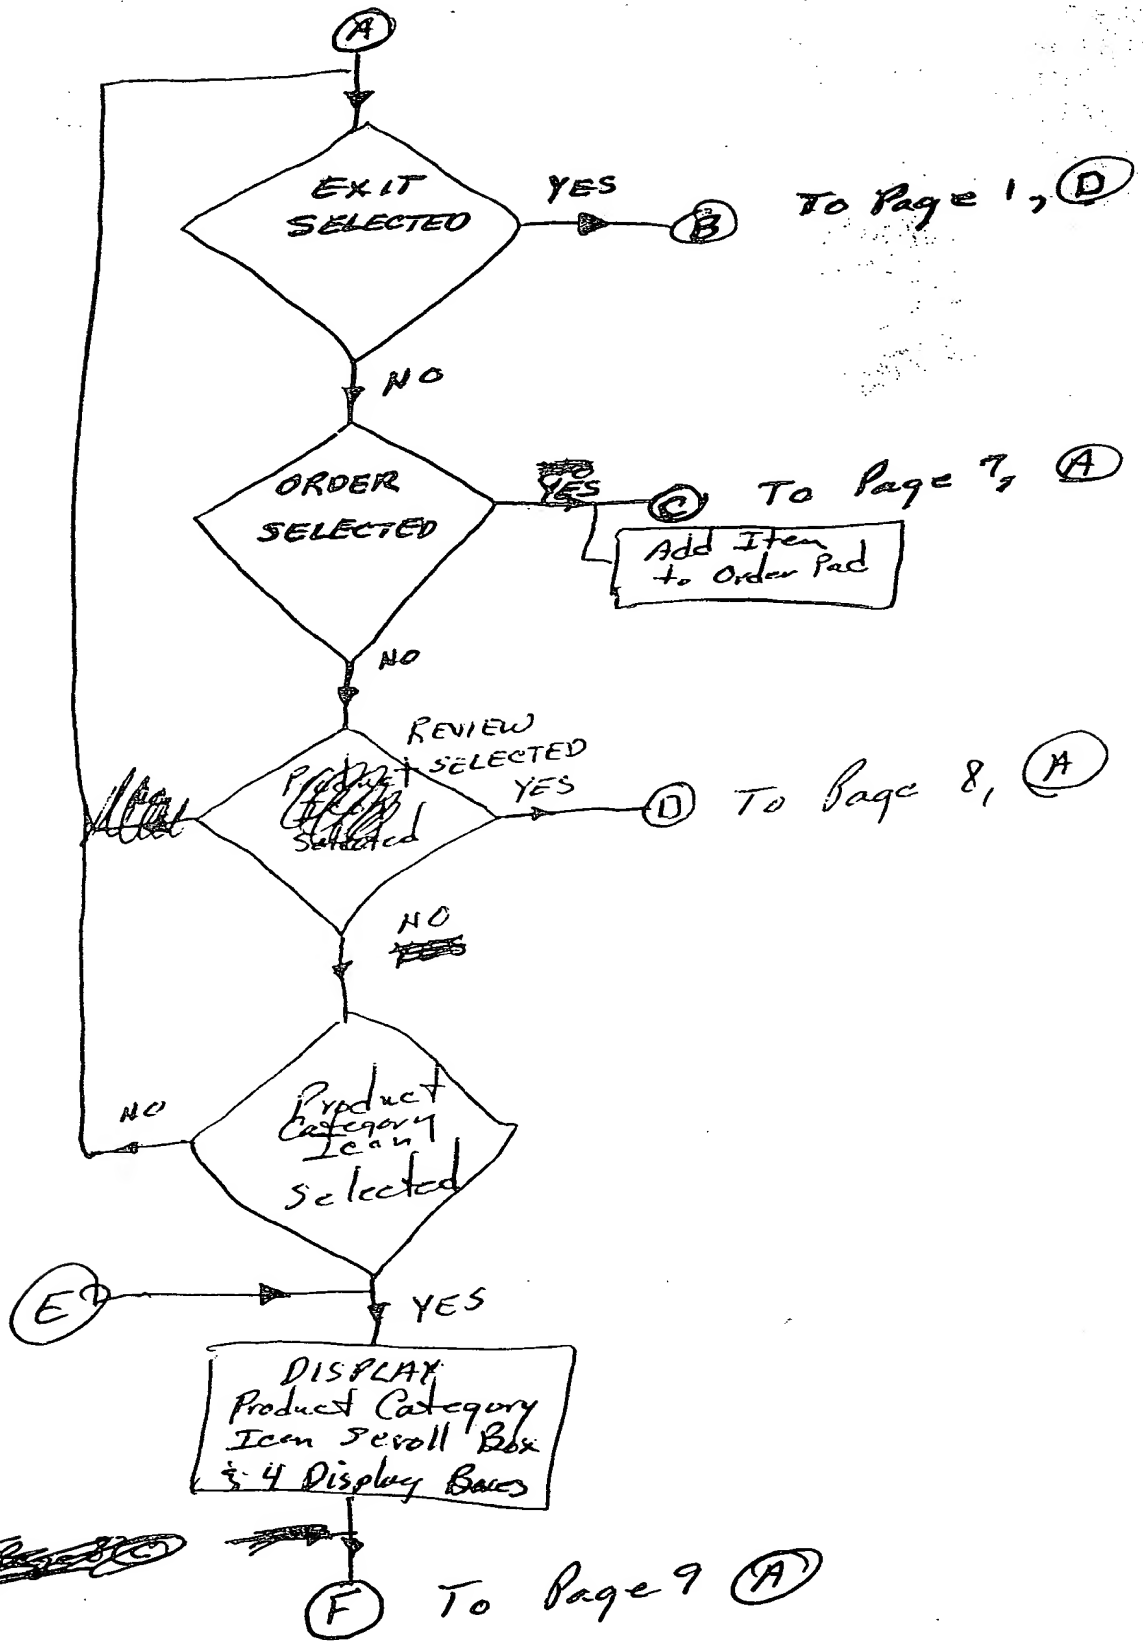 A
EXIT
SELECTED
YES
B
To Page 1, D
NO
ORDER
SELECTED
YES
C
To Page 7, A
Add Item
to Order Pad
NO
REVIEW
SELECTED
Product
Selected
YES
D
To Page 8, A
NO
Product
Category
Icon
Selected
NO
E
YES
DISPLAY
Product Category
Icon Scroll Box
& 4 Display Boxes
F
To Page 9 A